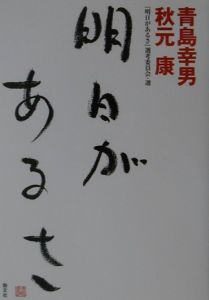 青島幸男
秋元 康
「明日があるさ」選考委員会・選
明日が
あるさ